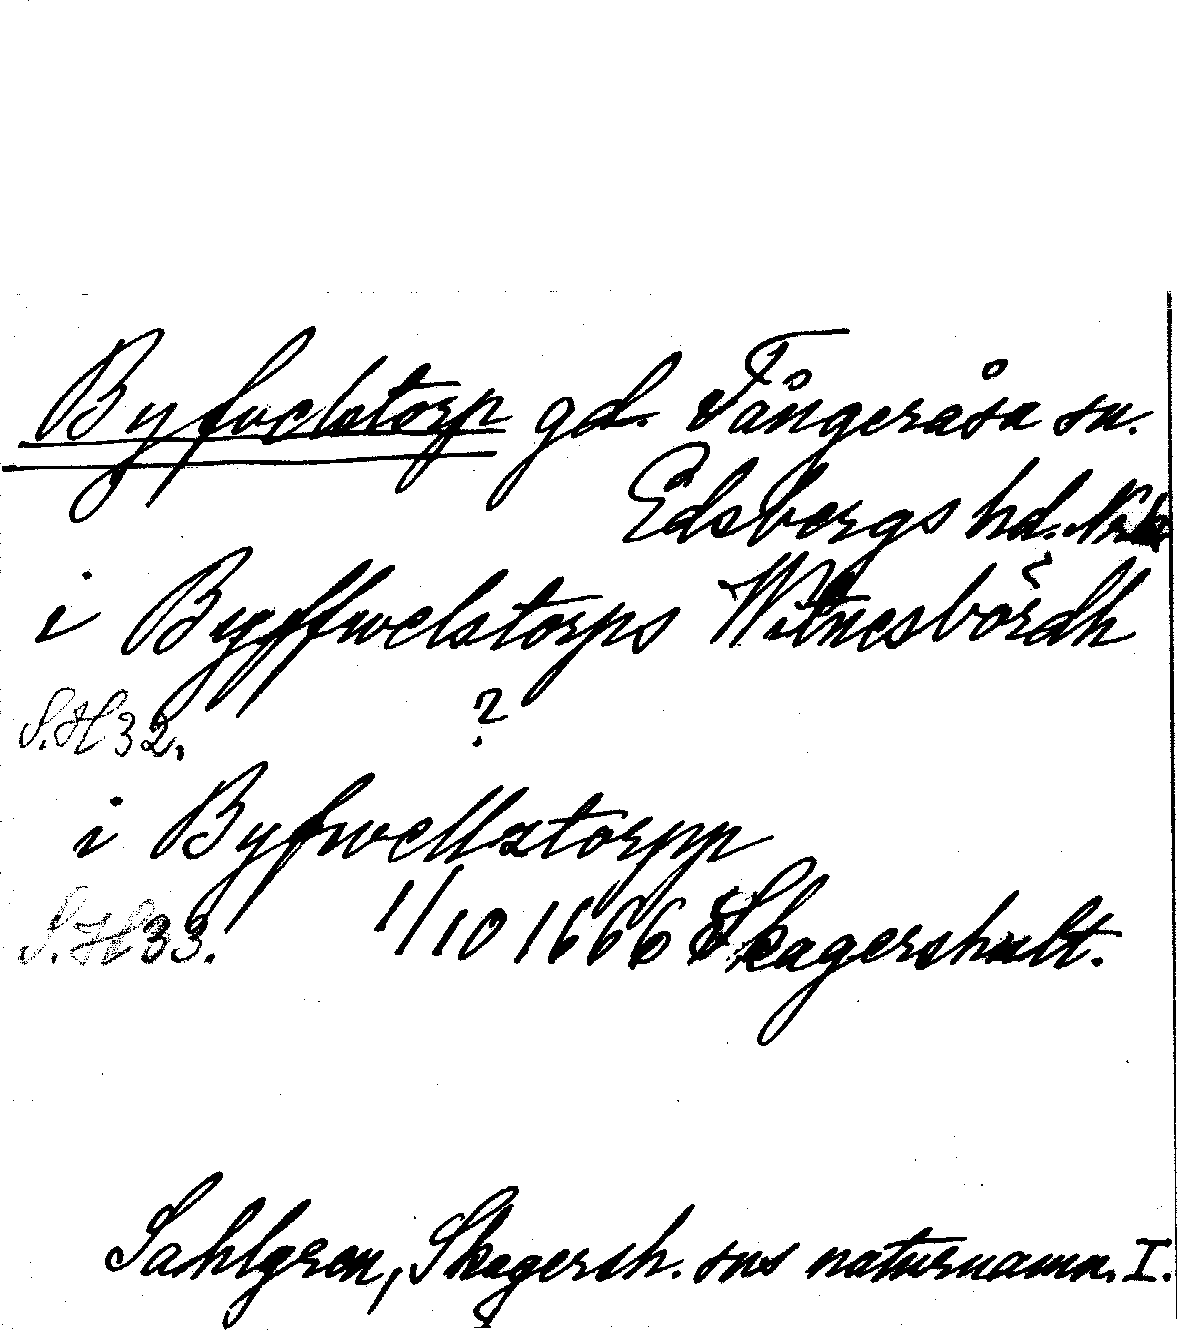 Byfvelstorp gd. Tångeråsa sn.
Edsbergs hd. Nrke
i Byffwelstorps Witnesbördh
S.H32. ?
i Byfwellstorpp
S.H33. 1/10 1666 Skagershult.
Sahlgren, Skagersh. sns naturnamn. I.